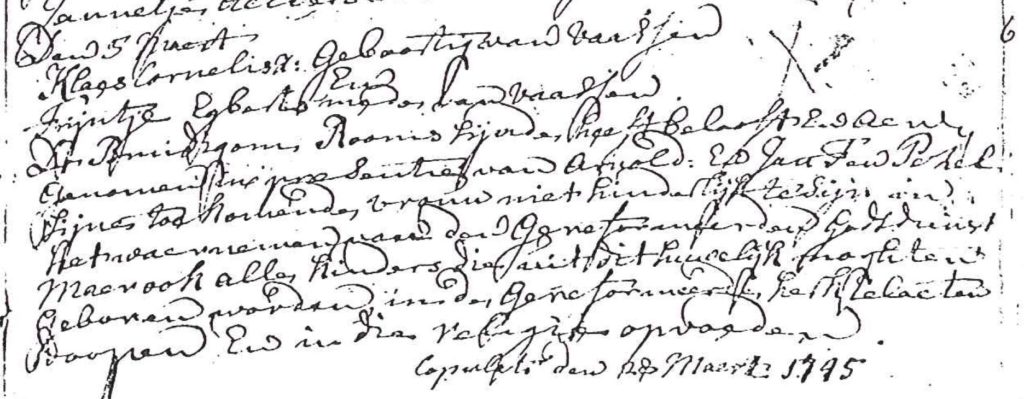 Jannetje
Den 5 Meert
Klaes Cornelisz: Geboortig van Vaassen
En
Trijntje Egberts mede van Vaassen
De Bruidegom Rooms zijnde heeft belooft En aen
genomen in presentie van Arnold: En Jan ten Pekel
zijne toekomende vrouw niet hinderlijk te zijn in
het waernemen van den Gereformeerden Godtdinst
Maer ook alle kinders die uit dit huwelijk mochten
Geboren worden in de Gereformeerde kerk te laeten
Doopen En in die religie op voeden
Copulati den 28 Maert 1745
6